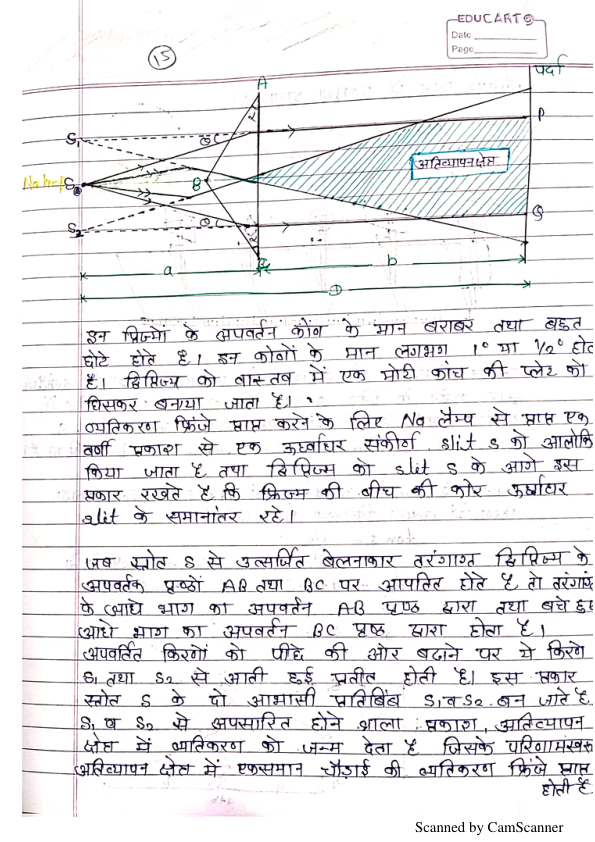 EDUCART
Date
Page
15
पर्दा
A
α
S₁
θ
P
अतिव्यापन क्षेत्र
S
B
S₂
θ
α
Q
a
b
D
इन प्रिज्मों के अपवर्तन कोंण के मान बराबर तथा बहुत
छोटे होते है। इन कोणों के मान लगभग 1° या 1/2° होते
है। द्विप्रिज्म को वास्तव में एक मोटी कांच की प्लेट को
घिसकर बनाया जाता है।
व्यतिकरण फ्रिंजे प्राप्त करने के लिए Na लैम्प से प्राप्त एक
वर्णी प्रकाश से एक ऊर्ध्वाधर संकीर्ण slit S को आलोकि
किया जाता है तथा द्विप्रिज्म को slit S के आगे इस
प्रकार रखते है कि प्रिज्म की बीच की कोर ऊर्ध्वाधर
slit के समानांतर रहे।
जब स्रोत S से उत्सर्जित बेलनाकार तरंगाग्र द्विप्रिज्म के
अपवर्तक पृष्ठों AB तथा BC पर आपतित होते है तो तरंगाग्र
के आधे भाग का अपवर्तन AB पृष्ठ द्वारा तथा बचे हुए
आधे भाग का अपवर्तन BC पृष्ठ द्वारा होता है।
अपवर्तित किरणों को पीछे की ओर बढाने पर ये किरणे
S₁ तथा S₂ से आती हुई प्रतीत होती है। इस प्रकार
स्रोत S के दो आभासी प्रतिबिंब S₁ व S₂ बन जाते है
S₁ व S₂ से अपसारित होने वाला प्रकाश, अतिव्यापन
क्षेत्र में व्यतिकरण को जन्म देता है जिसके परिणामस्वरू
अतिव्यापन क्षेत्र में एकसमान चौड़ाई की व्यतिकरण फ्रिंजे प्राप्त
होती है
Scanned by CamScanner